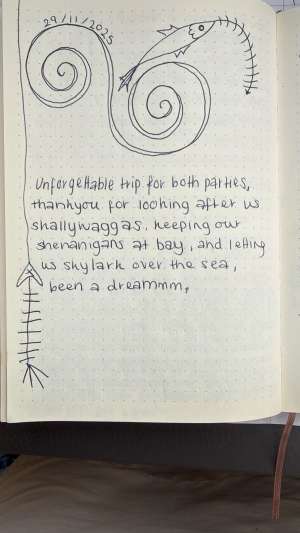 29/11/2025
Unforgettable trip for both parties,
thankyou for looking after us
shallywaggas, keeping our
shenanigans at bay, and letting
us skylark over the sea,
been a dreammm,